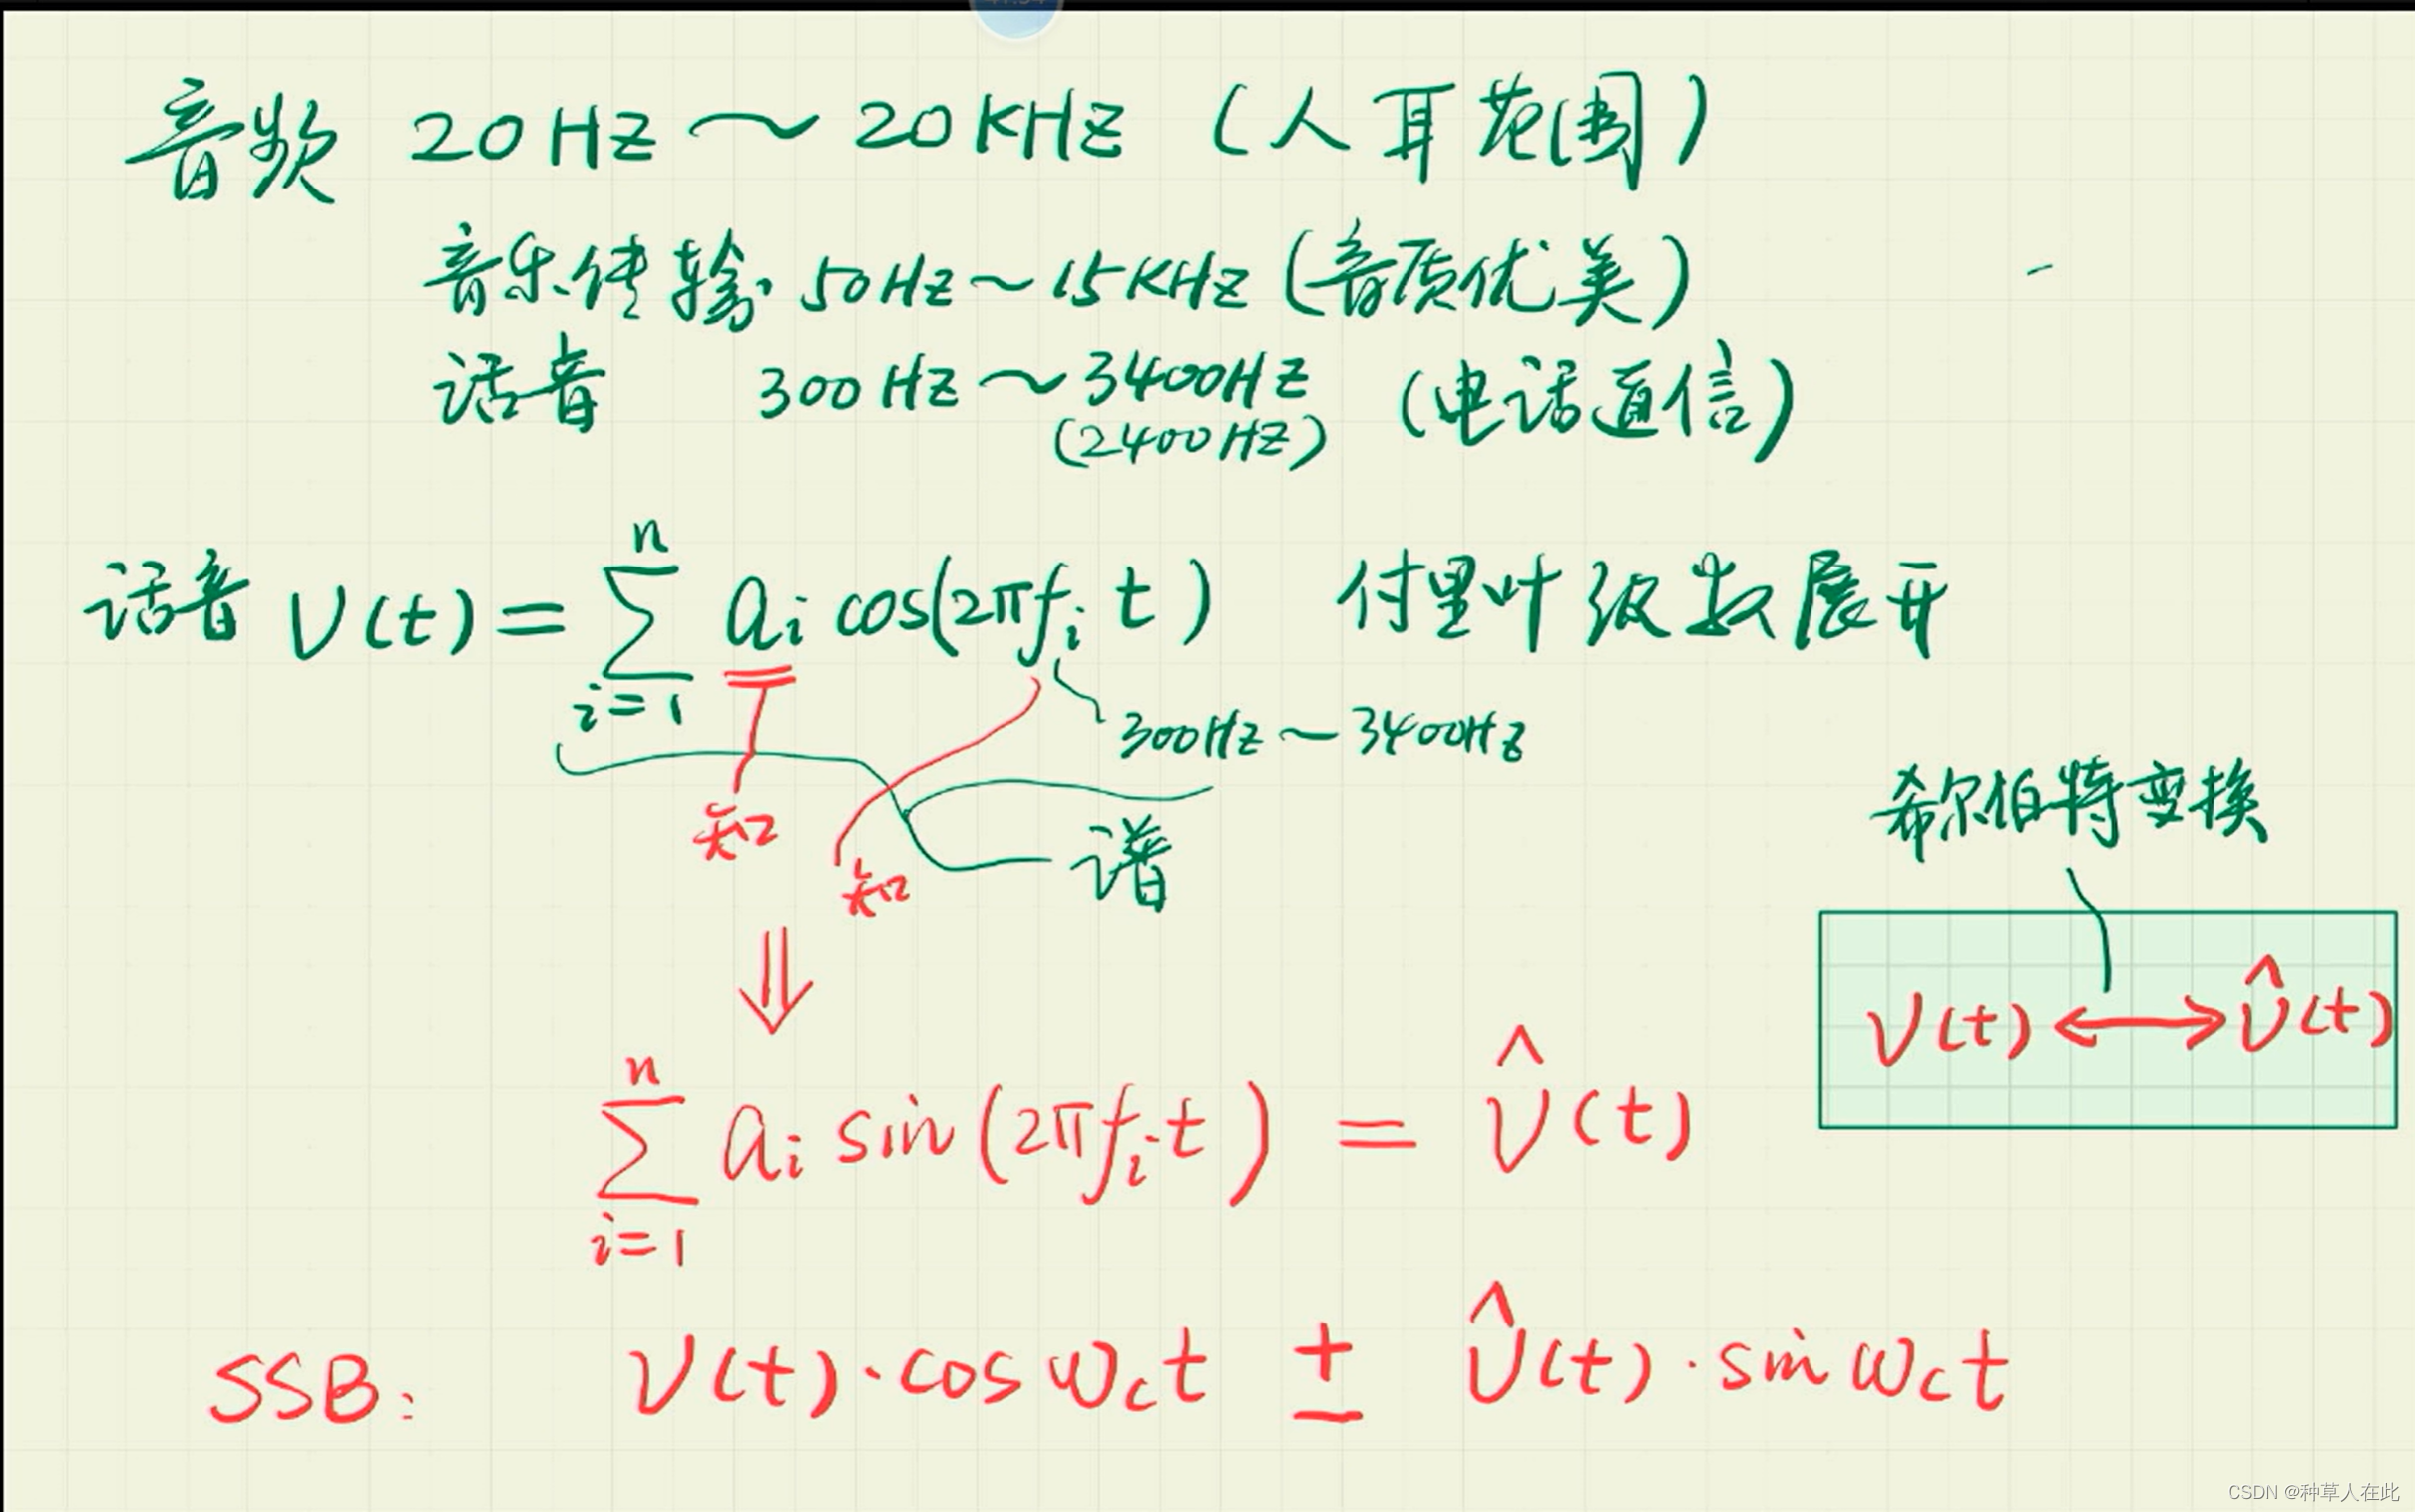 音频 20HZ ～ 20KHZ (人耳范围)
音乐传输 50HZ～15KHZ (音质优美)
话音 300HZ～3400HZ (电话通信)
(2400HZ)
话音 V(t) = ∑ⁿᵢ₌₁ aᵢ cos(2πfᵢt) 付里叶级数展开
300HZ～3400HZ
希尔伯特变换
知
谱
知
V(t) ⟷ V̂(t)
∑ⁿᵢ₌₁ aᵢ sin(2πfᵢt) = V̂(t)
SSB: V(t)·cosω_ct ± V̂(t)·sinω_ct
CSDN @种草人在此